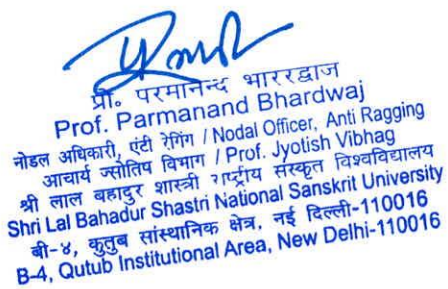 प्रो० परमानन्द भाररद्वाज
Prof. Parmanand Bhardwaj
नोडल अधिकारी, एंटी रेगिंग / Nodal Officer, Anti Ragging
आचार्य ज्योतिष विभाग / Prof. Jyotish Vibhag
श्री लाल बहादुर शास्त्री राष्ट्रीय संस्कृत विश्वविद्यालय
Shri Lal Bahadur Shastri National Sanskrit University
बी-४, कुतुब सांस्थानिक क्षेत्र, नई दिल्ली-110016
B-4, Qutub Institutional Area, New Delhi-110016